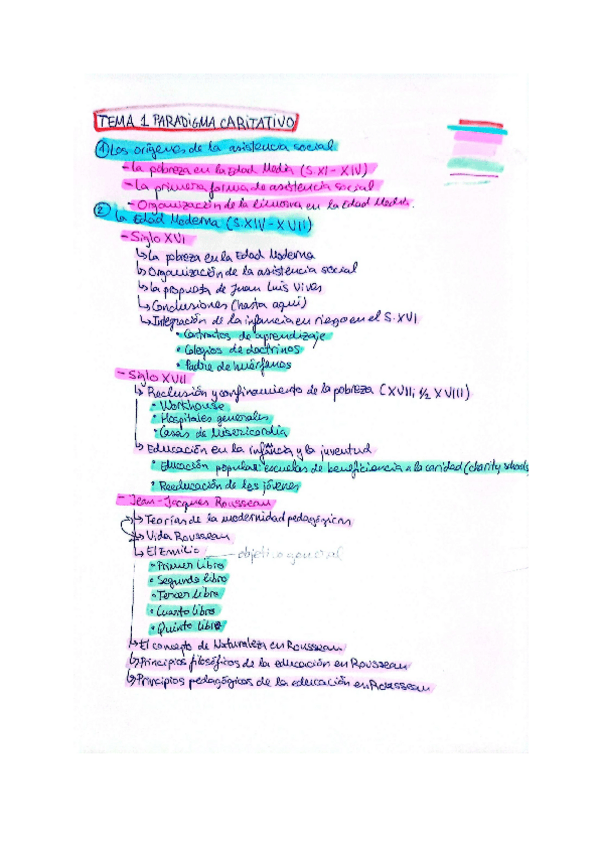 TEMA 1 PARADIGMA CARITATIVO
1 Los orígenes de la asistencia social
- La pobreza en la Edad Media (S.XI - XIV)
- La primera forma de asistencia social
- Organización de la limosna en la Edad Media.
2 La Edad Moderna (S.XIV - XVII)
- Siglo XVI
↳ La pobreza en la Edad Moderna
↳ Organización de la asistencia social
↳ La propuesta de Juan Luis Vives
↳ Conclusiones (hasta aquí)
↳ Integración de la infancia en riesgo en el S.XVI
• Contratos de aprendizaje
• Colegios de doctrinos
• Padre de huérfanos
- Siglo XVII
↳ Reclusión y confinamiento de la pobreza (XVII; 1/2 XVIII)
• Workhouse
• Hospitales generales
• Casas de Misericordia
↳ Educación en la infancia y la juventud
• Educación popular: escuelas de beneficiencia a la caridad (charity schools
• Reeducación de los jóvenes
- Jean-Jacques Rousseau
↳ Teorías de la modernidad pedagógicas
↳ Vida Rousseau
↳ El Emilio — objetivo general
• Primer libro
• Segundo libro
• Tercer libro
• Cuarto libro
• Quinto libro
↳ El concepto de Naturaleza en Rousseau
↳ Principios filosóficos de la educación en Rousseau
↳ Principios pedagógicos de la educación en Rousseau